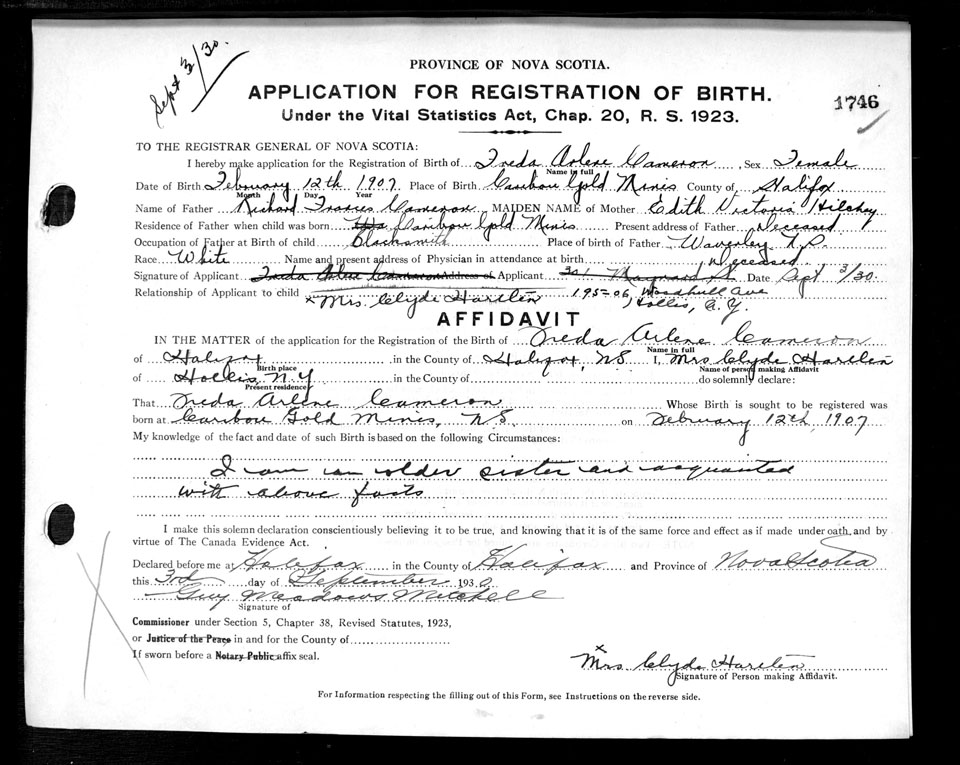 Sept 3/30.
PROVINCE OF NOVA SCOTIA.
APPLICATION FOR REGISTRATION OF BIRTH.
1746
Under the Vital Statistics Act, Chap. 20, R. S. 1923.
TO THE REGISTRAR GENERAL OF NOVA SCOTIA:
I hereby make application for the Registration of Birth of Freda Arlene Cameron Sex Female
Name in full
Date of Birth February 12th 1907 Place of Birth Caribou Gold Mines County of Halifax
Month Day Year
Name of Father Richard Francis Cameron MAIDEN NAME of Mother Edith Victoria Hilchey
Residence of Father when child was born Caribou Gold Mines Present address of Father Deceased
Occupation of Father at Birth of child Blacksmith Place of birth of Father Waverley N.S.
Race White Name and present address of Physician in attendance at birth Deceased
Signature of Applicant Freda Arlene Cameron Address of Applicant 301 Maynard St Date Sept 3/30.
Relationship of Applicant to child x Mrs. Clyde Hartlen 195-06, Woodhull Ave
Hollis, N.Y.
AFFIDAVIT
IN THE MATTER of the application for the Registration of the Birth of Freda Arlene Cameron
Name in full
of Halifax in the County of Halifax, NS I, Mrs Clyde Hartlen
Birth place Name of person making Affidavit
of Hollis, N.Y in the County of do solemnly declare:
Present residence
That Freda Arlene Cameron Whose Birth is sought to be registered was
born at Caribou Gold Mines, N.S. on February 12th, 1907
My knowledge of the fact and date of such Birth is based on the following Circumstances:
I am an older sister and acquainted
with above facts
I make this solemn declaration conscientiously believing it to be true, and knowing that it is of the same force and effect as if made under oath, and by
virtue of The Canada Evidence Act.
Declared before me at Halifax in the County of Halifax and Province of Nova Scotia
this 3rd day of September 1930
Guy Meadows Mitchell
Signature of
Commissioner under Section 5, Chapter 38, Revised Statutes, 1923,
or Justice of the Peace in and for the County of
If sworn before a Notary Public affix seal.
x
Mrs Clyde Hartlen
Signature of Person making Affidavit.
For Information respecting the filling out of this Form, see Instructions on the reverse side.